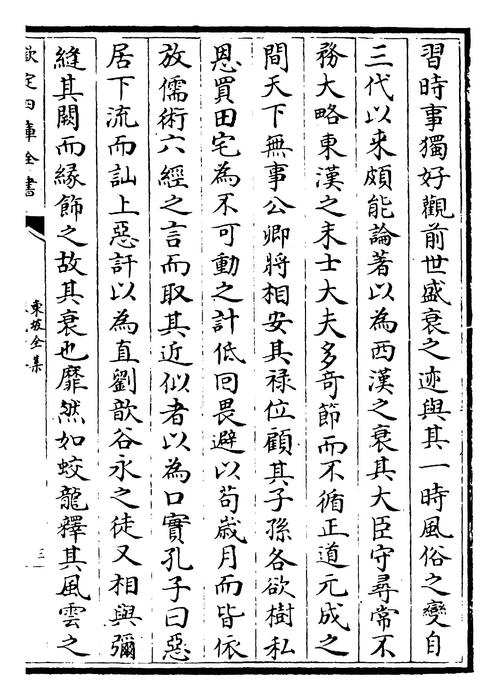 習時事獨好觀前世盛衰之迹與其一時風俗之變自
三代以来頗能論著以為西漢之衰其大臣守尋常不
務大略東漢之末士大夫多竒節而不循正道元成之
間天下無事公卿將相安其禄位顧其子孫各欲樹私
恩買田宅為不可動之計低回畏避以苟歳月而皆依
放儒術六經之言而取其近似者以為口實孔子曰惡
居下流而訕上惡訐以為直劉歆谷永之徒又相與彌
縫其闕而緣飾之故其衰也靡然如蛟龍釋其風雲之
欽定四庫全書
東坡全集
三